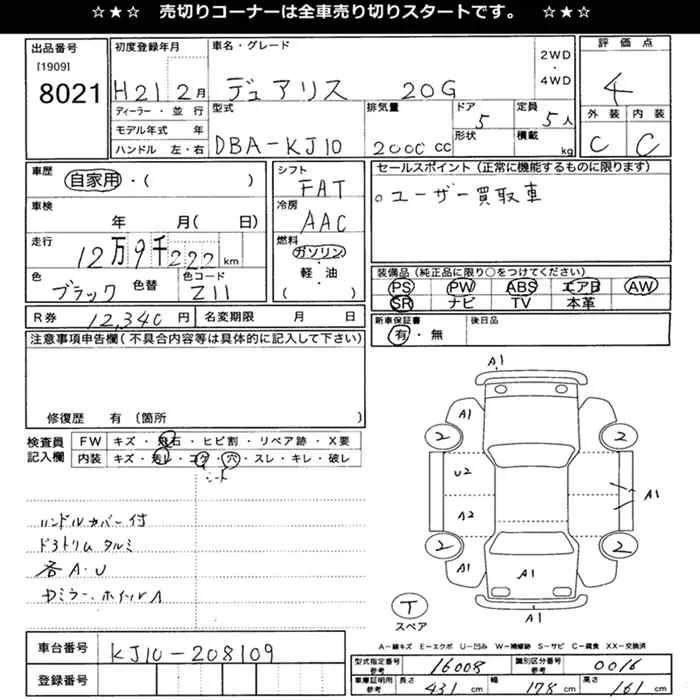 ☆★☆ 売切りコーナーは全車売り切りスタートです。 ☆★☆
出品番号 初度登録年月 車名・グレード 2WD・4WD 評価点
[1909]
8021 H21 2月 デュアリス 20G 4
ディーラー・並行 型式 排気量 ドア 5 定員 5人 外装 内装
モデル年式 年 形状 積載 kg C C
ハンドル 左・右 DBA-KJ10 2000 CC
車歴 自家用・( ) シフト FAT セールスポイント(正常に機能するものに限ります)
車検 年 月( 日) 冷房 AAC 。ユーザー買取車
走行 12万9千222km 燃料 ガソリン・軽・油 ( )
色 ブラック 色替 色コード Z11 装備品(純正品に限り○をつけてください)
PS PW ABS エアB AW
SR ナビ TV 本革
R券 12,340円 名変期限 月 日 新車保証書 有・無 後日品
注意事項申告欄(不具合内容等は具体的に記入して下さい)
修復歴 有 (箇所 )
検査員記入欄 FW キズ・飛石・ヒビ割・リペア跡・X要
内装 キズ・汚レ・コゲ・穴・スレ・キレ・破レ
シート
ハンドルカバー付
ドアトリムタルミ
各A・U
ドミラー、ホイルA
A1
A1
2 2
U2
A2 A1
2 2
A1 A1
A1
T
スペア
A-線キズ E-エクボ U-凹み W-補修跡 S-サビ C-腐食 XX-交換済
車台番号 KJ10-208109
登録番号
型式指定番号 参考 16008 識別区分番号 参考 0016
車庫証明用 参考 長さ 431cm 幅 178cm 高さ 161cm